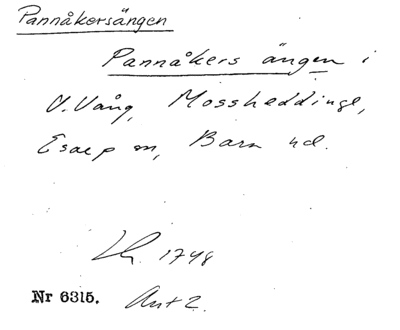 Pannåkersängen
Pannåkers ängen i
V. Vång, Mossheddinge,
Esarp sn, Bara hd.
1748
Nr 6315. Akt 2.